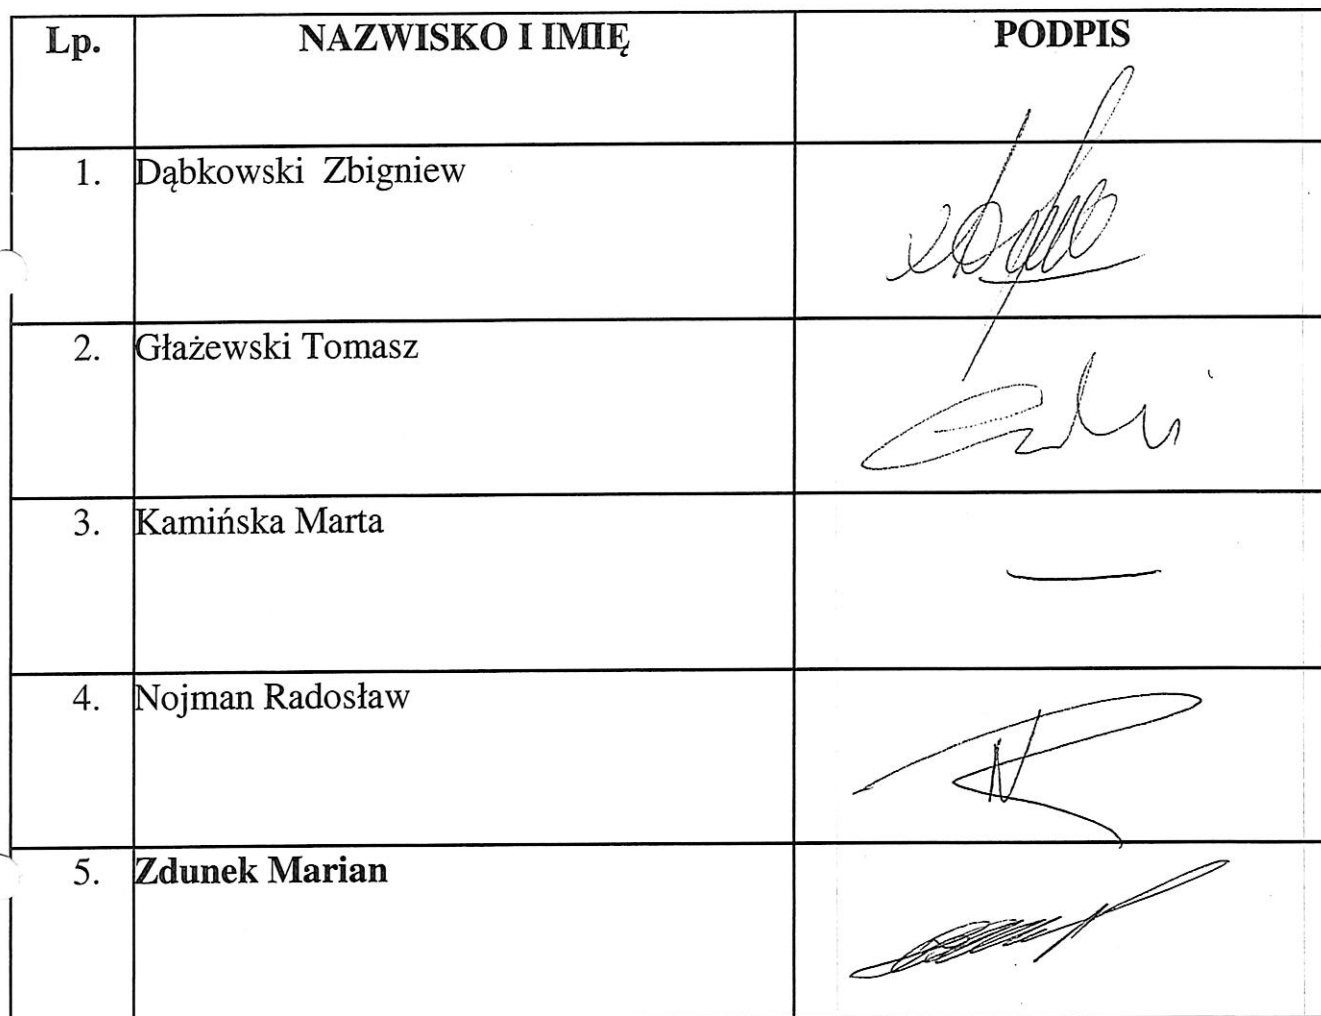 Lp. NAZWISKO I IMIĘ PODPIS
1. Dąbkowski Zbigniew
2. Głażewski Tomasz
3. Kamińska Marta
4. Nojman Radosław
5. Zdunek Marian